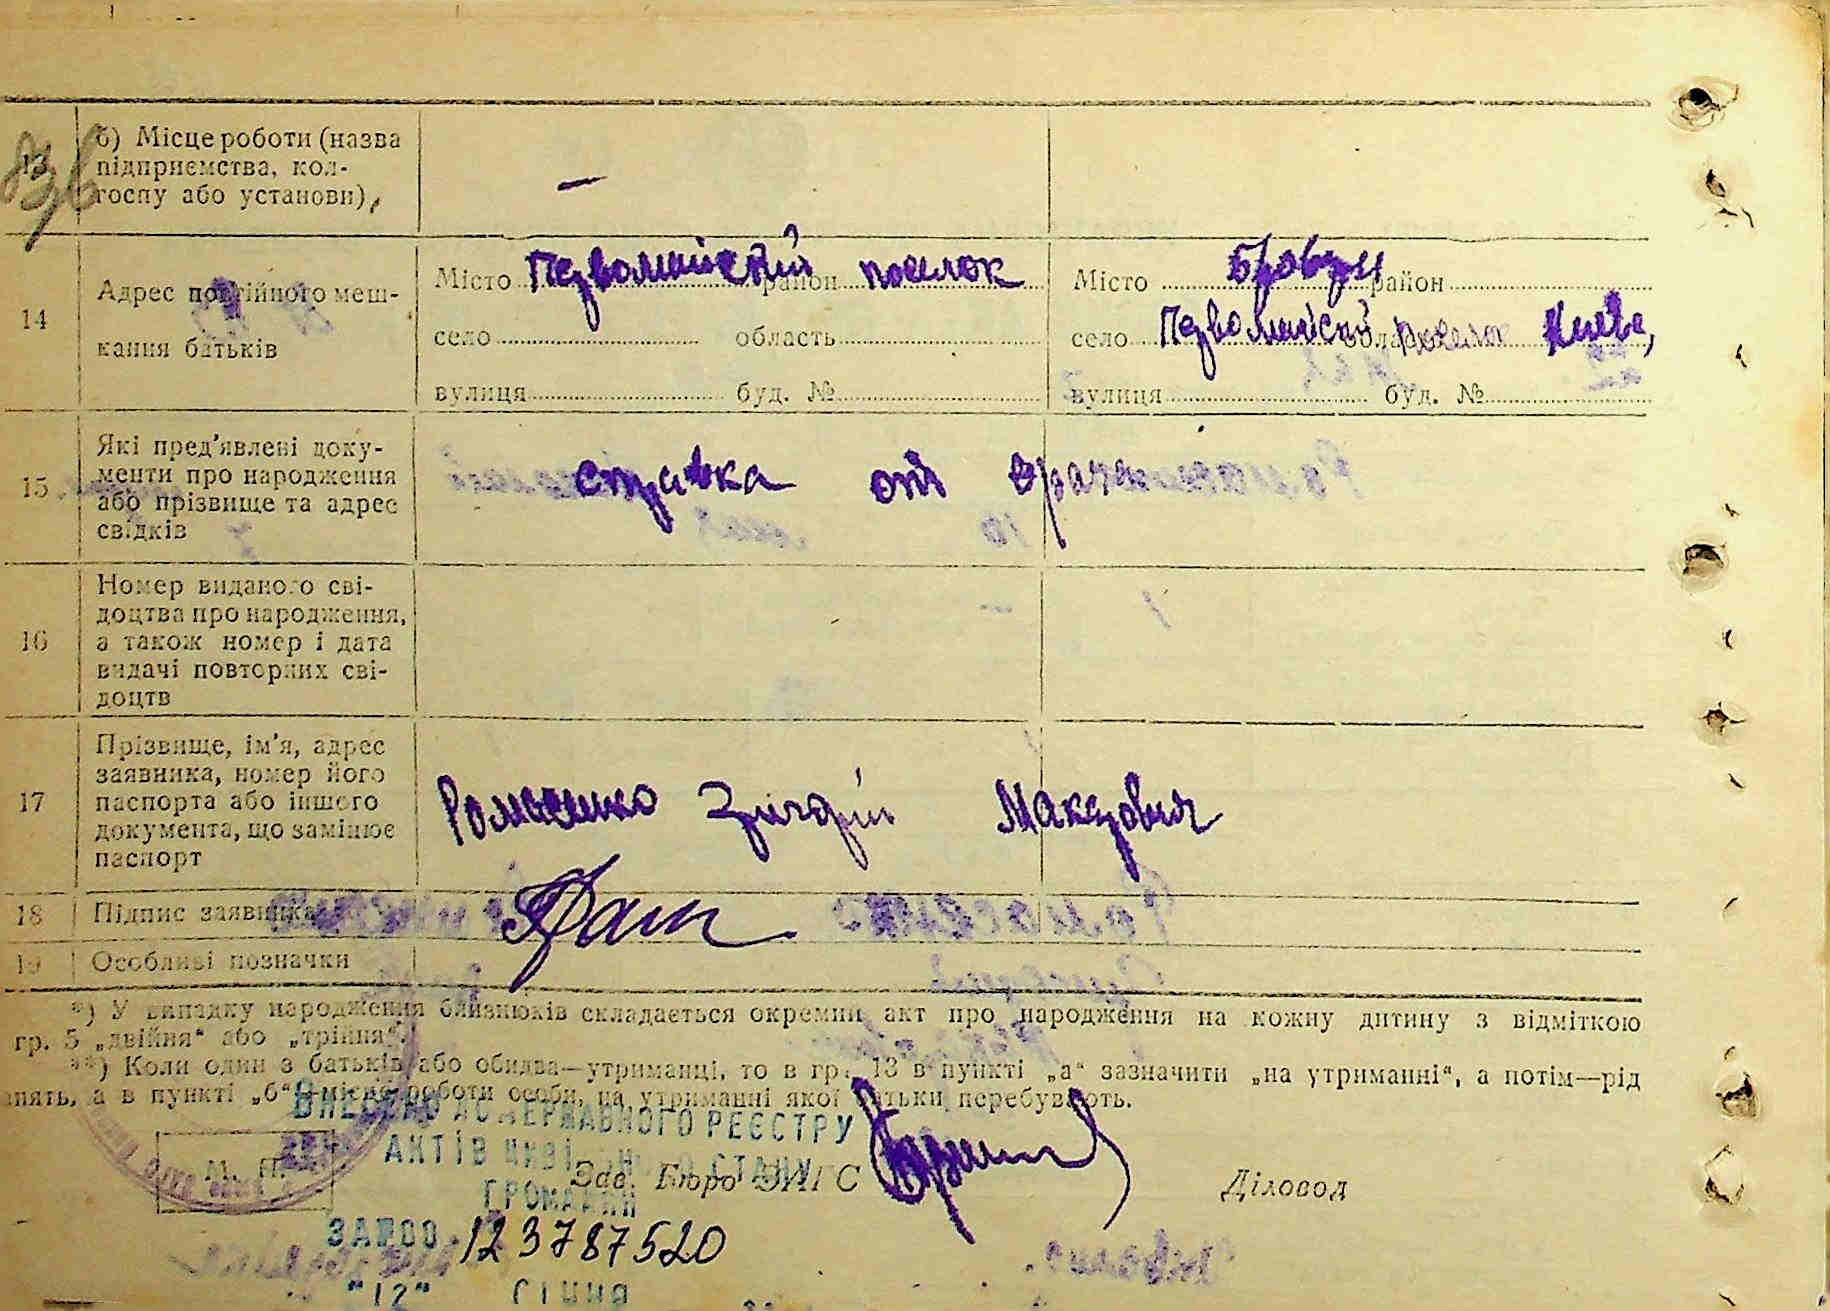 13 б) Місце роботи (назва
підприємства, кол-
госпу або установи), —
14 Адрес постійного меш-
кання батьків
Місто Первомайский район поселок
село область
вулиця буд. №
Місто Бровары район
село Первомайский область поселок Киев,
вулиця буд. №
15 Які пред'явлені доку-
менти про народження
або прізвище та адрес
свідків
справка от врача
16 Номер виданого сві-
доцтва про народження,
а також номер і дата
видачі повторних сві-
доцтв
17 Прізвище, ім'я, адрес
заявника, номер його
паспорта або іншого
документа, що замінює
паспорт
Романенко Григорий Макарович
18 Підпис заявника
19 Особливі позначки
*) У випадку народження близнюків складається окремий акт про народження на кожну дитину з відміткою
гр. 5 „двійня“ або „трійня“.
**) Коли один з батьків або обидва—утриманці, то в гр. 13 в пункті „а“ зазначити „на утриманні“, а потім—рід
занять, а в пункті „б“ місце роботи особи, на утриманні якої батьки перебувають.
ВНЕСЕНО ДО ДЕРЖАВНОГО РЕЄСТРУ
АКТІВ ЦИВІЛЬНОГО СТАНУ
ГРОМАДЯН
М. П. Зав. Бюро ЗАГС Діловод
123787520
"12" СІЧНЯ